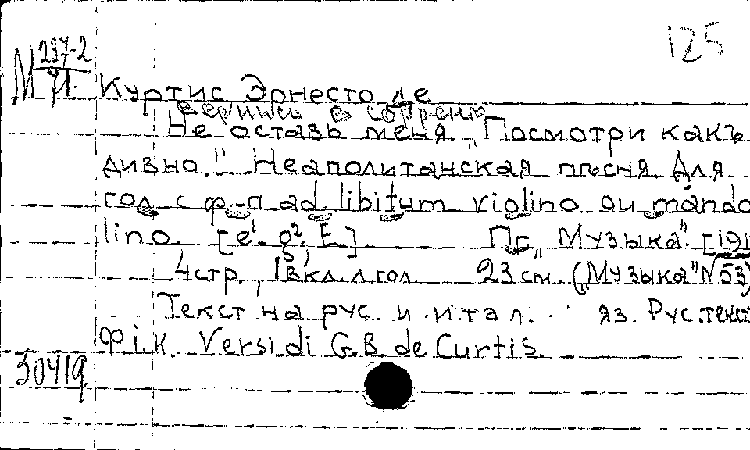 125
М 237-2
91
Куртис Эрнесто де
Вернись в Сорренто
Не оставь меня „Посмотри какъ
дивно." Неаполитанская пѣсня. Для
гол. с ф-п ad libitum violino ou mando
lino. [e¹-g², E]. Пг, „Музыка". [191
4 стр, 1 вкл. л. гол. 23 см. („Музыка" N 53)
Текст на рус. и итал. яз. Рус. текст
Ф.i.К. Versi di G.B. de Curtis.
30419